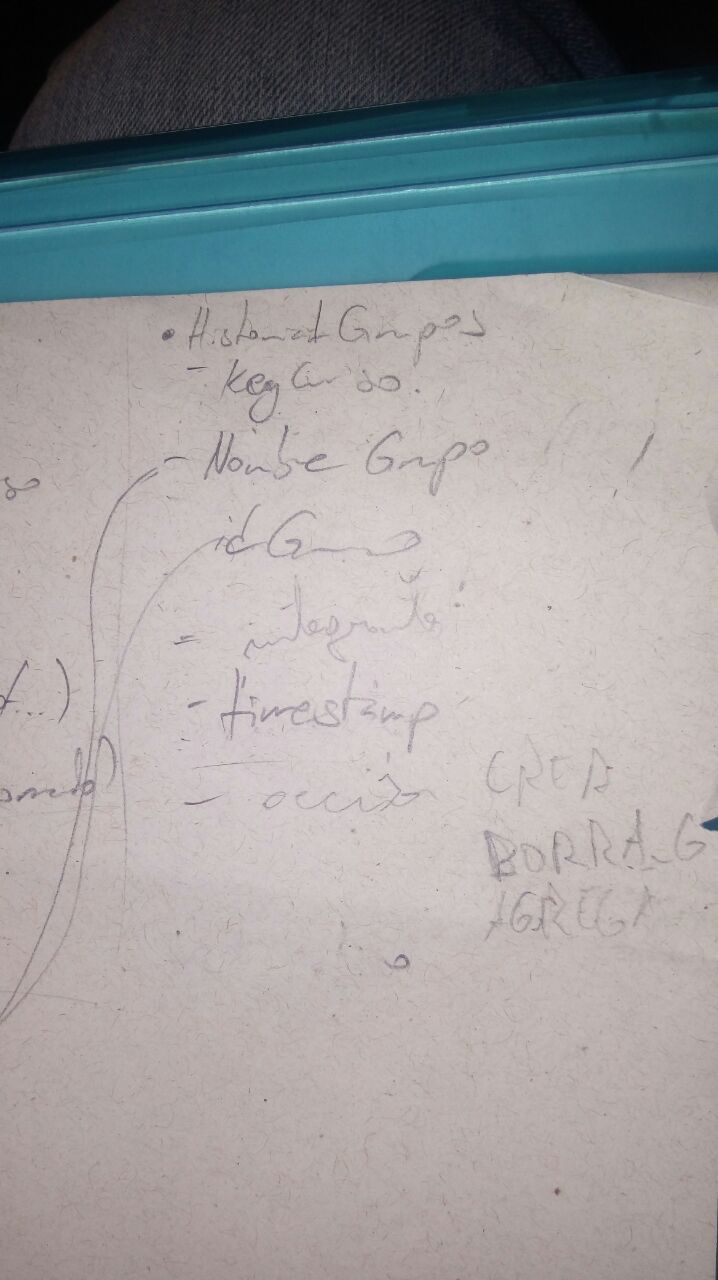 • HistorialGrupos
- KeyCurso.
- Nombre Grupo
idGrupo
- integrante
- timestamp
- acción CREA
BORRA_G
AGREGA